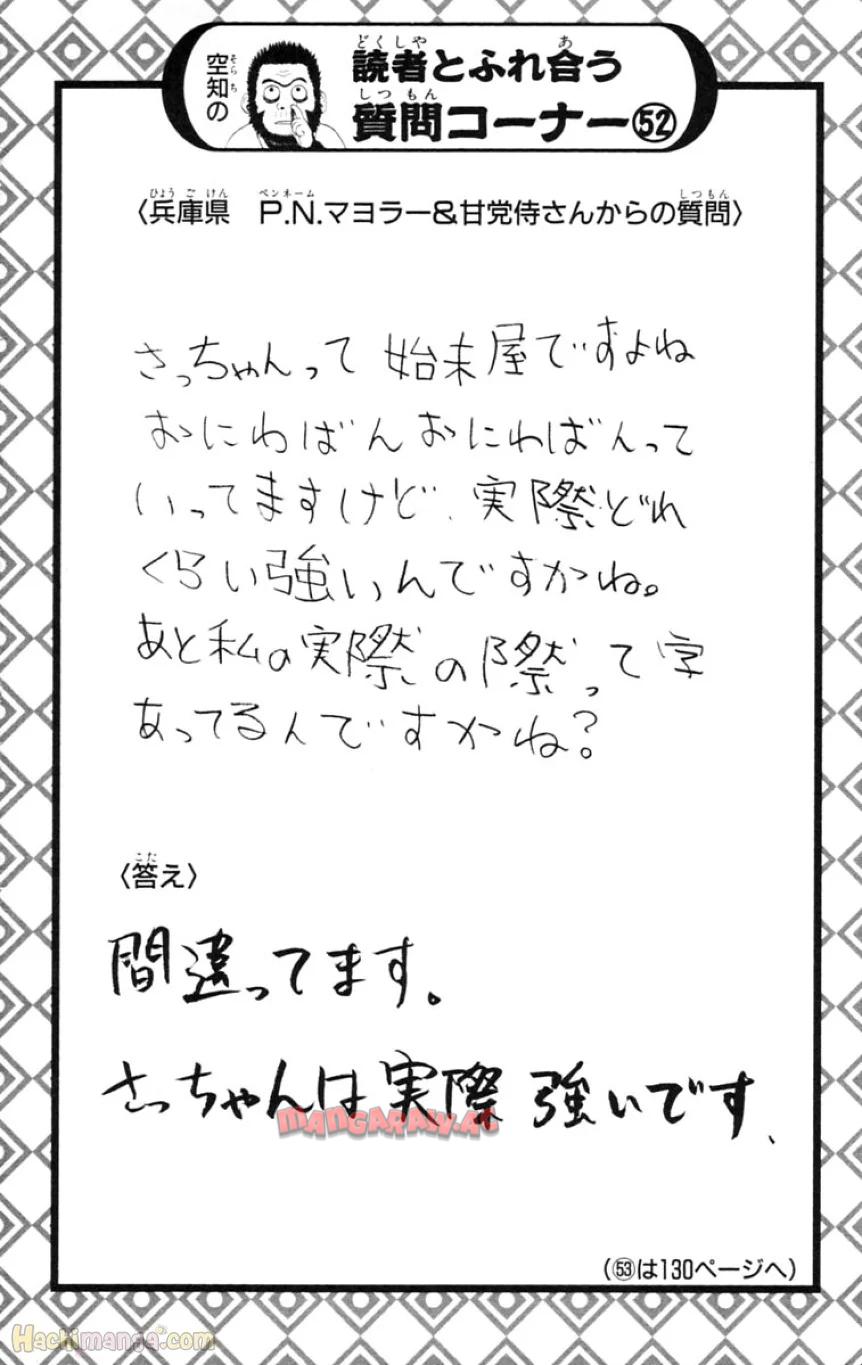 空知の
読者とふれ合う
質問コーナー㊾
〈兵庫県　P.N.マヨラー&甘党侍さんからの質問〉
さっちゃんって 始末屋ですよね
おにわばんおにわばんって
いってますけど、実際どれ
くらい強いんですかね。
あと私の実際の際って字
あってるんですかね?
〈答え〉
間違ってます。
さっちゃんは実際 強いです、
MANGARAW.AC
(53は130ページへ)
Hachimanga.com